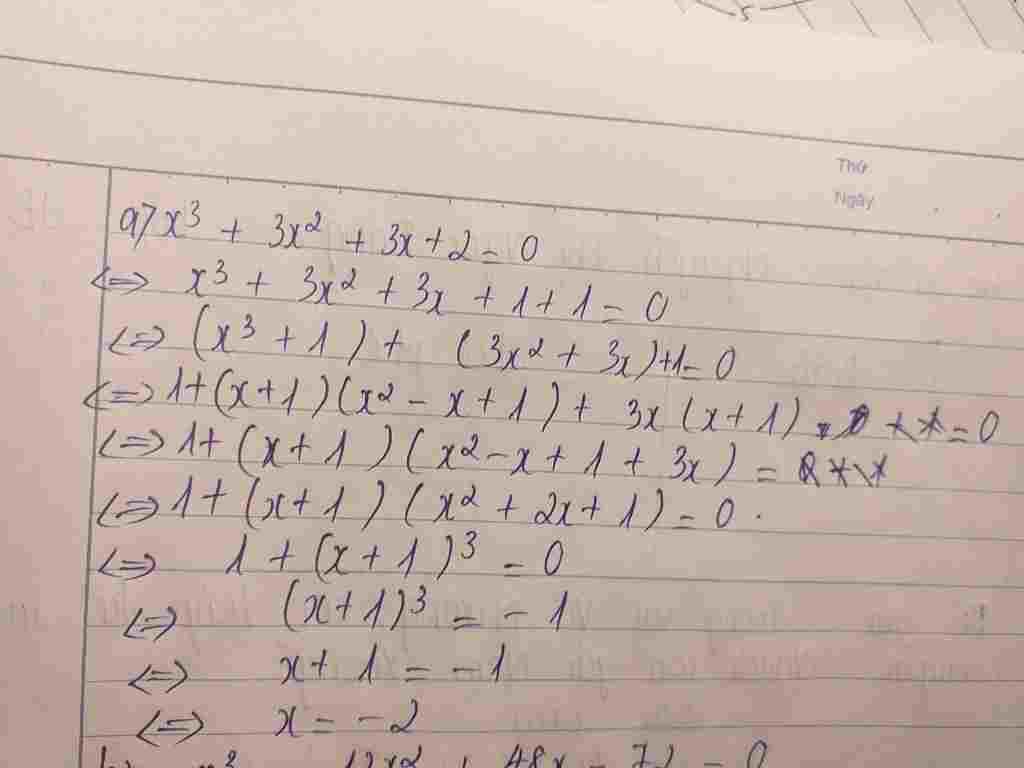 Thứ
Ngày
a) x³ + 3x² + 3x + 2 = 0
<=> x³ + 3x² + 3x + 1 + 1 = 0
<=> (x³ + 1) + (3x² + 3x) + 1 = 0
<=> 1 + (x + 1)(x² - x + 1) + 3x(x + 1) = 0
<=> 1 + (x + 1)(x² - x + 1 + 3x) =
<=> 1 + (x + 1)(x² + 2x + 1) = 0.
<=> 1 + (x + 1)³ = 0
<=> (x + 1)³ = - 1
<=> x + 1 = - 1
<=> x = - 2
12x² + 48x - 72 = 0